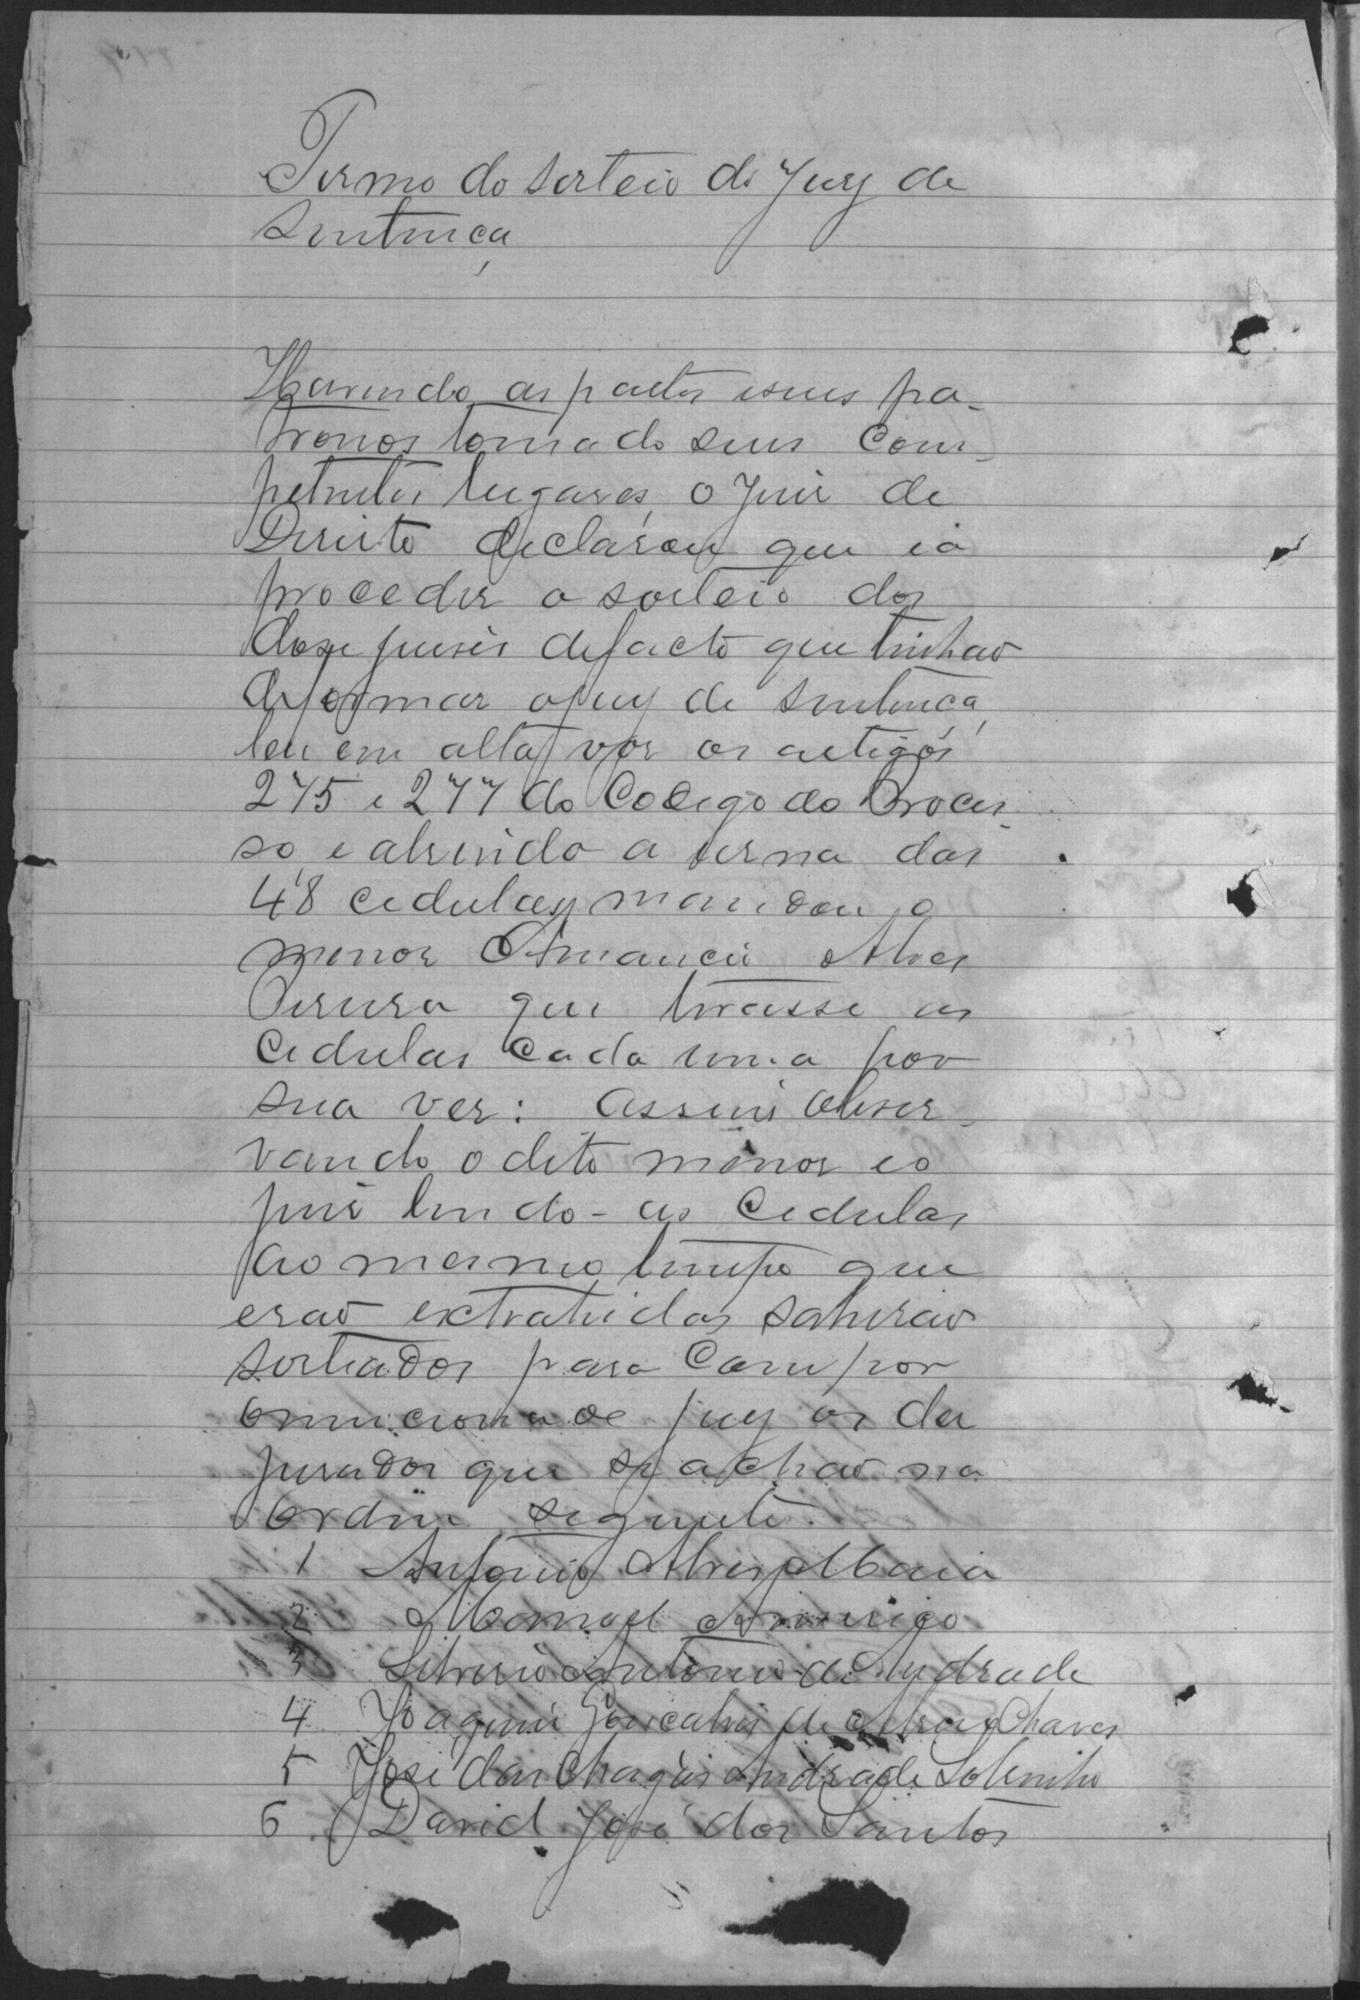 Termo do sorteio do Jury de
Sentença
Havendo as partes e seus pa-
tronos tomado seus com-
petentes lugares, o Juiz de
Direito declarou que ia
proceder o sorteio dos
dose juises de facto que tinhão
de formar o jury de sentença,
leu em alta voz os artigos
275 e 277 do Codigo do Proces-
so, e abrindo a urna das
48 cedulas mandou o
menor Amancio Alves
Pereira que tirasse as
cedulas cada uma por
sua vez: assim obser-
vando o dito menor e o
juiz lendo-as cedulas
ao mesmo tempo que
erão extrahidas sahirão
sorteados para compor
o mencionado jury os de
jurados que se achão na
ordem seguinte.
1 Antonio Alves Maia
2 Manoel
3 Silverio Antonio de Andrade
4 Joaquim Gonçalves de Chaves
5 José das Chagas Andrade Sobrinho
6 David José dos Santos